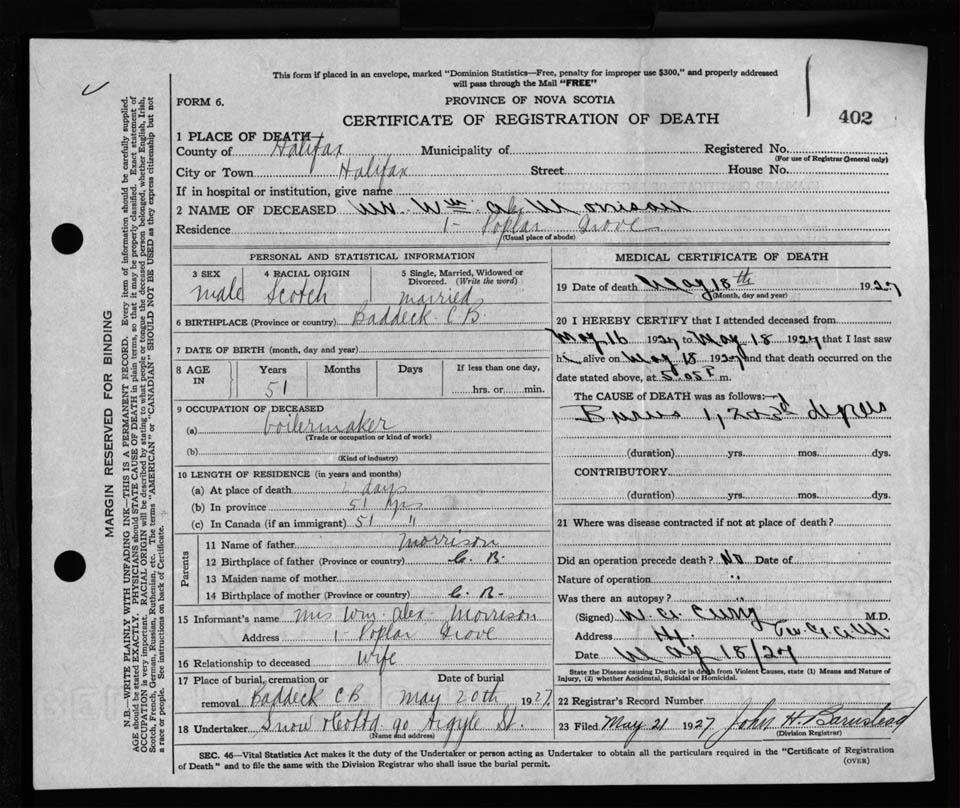 This form if placed in an envelope, marked "Dominion Statistics—Free, penalty for improper use $300," and properly addressed
will pass through the Mail "FREE"
FORM 6.
PROVINCE OF NOVA SCOTIA
CERTIFICATE OF REGISTRATION OF DEATH
402
1 PLACE OF DEATH—
County of Halifax Municipality of Registered No.
(For use of Registrar General only)
City or Town Halifax Street House No.
If in hospital or institution, give name
2 NAME OF DECEASED Mr. Wm. Alex Morrison
Residence 1 - Poplar Grove
(Usual place of abode)
PERSONAL AND STATISTICAL INFORMATION
3 SEX 4 RACIAL ORIGIN 5 Single, Married, Widowed or
Divorced. (Write the word)
male Scotch married
6 BIRTHPLACE (Province or country) Baddeck C.B.
7 DATE OF BIRTH (month, day and year)
8 AGE IN Years Months Days If less than one day,
51 hrs. or min.
9 OCCUPATION OF DECEASED
(a) boilermaker
(Trade or occupation or kind of work)
(b)
(Kind of industry)
10 LENGTH OF RESIDENCE (in years and months)
(a) At place of death days
(b) In province 51 yrs
(c) In Canada (if an immigrant) 51 "
Parents
11 Name of father Morrison
12 Birthplace of father (Province or country) C. B.
13 Maiden name of mother
14 Birthplace of mother (Province or country) C. B.
15 Informant's name Mrs Wm. Alex - Morrison
Address 1- Poplar Grove
16 Relationship to deceased Wife
17 Place of burial, cremation or Date of burial
removal Baddeck C B May 20th 1927.
18 Undertaker Snow & Co Ltd 90 Argyle St.
(Name and address)
MEDICAL CERTIFICATE OF DEATH
19 Date of death May 18th 1927
(Month, day and year)
20 I HEREBY CERTIFY that I attended deceased from
May 16 1927 to May 18 1927 that I last saw
h alive on May 18 1927 and that death occurred on the
date stated above, at 5.05 P m.
The CAUSE of DEATH was as follows:—
Burns 1, 2 & 3rd degrees
(duration) yrs. mos. dys.
CONTRIBUTORY
(duration) yrs. mos. dys.
21 Where was disease contracted if not at place of death?
Did an operation precede death? No Date of
Nature of operation "
Was there an autopsy? "
(Signed) M.D.
Address
Date May 18/27
State the Disease causing Death, or in death from Violent Causes, state (1) Means and Nature of
Injury, (2) whether Accidental, Suicidal or Homicidal.
22 Registrar's Record Number
23 Filed May 21 1927 John H. Barnstead
(Division Registrar)
SEC. 46—Vital Statistics Act makes it the duty of the Undertaker or person acting as Undertaker to obtain all the particulars required in the "Certificate of Registration
of Death" and to file the same with the Division Registrar who shall issue the burial permit.
(OVER)
MARGIN RESERVED FOR BINDING
N.B.—WRITE PLAINLY WITH UNFADING INK—THIS IS A PERMANENT RECORD. Every item of information should be carefully supplied.
AGE should be stated EXACTLY. PHYSICIANS should STATE CAUSE OF DEATH in plain terms, so that it may be properly classified. Exact statement of
OCCUPATION is very important. RACIAL ORIGIN will be described by stating to what people or tongue the deceased person belonged, whether English, Irish,
Scotch, French, German, Russian, Ruthenian, etc. The terms "AMERICAN" or "CANADIAN" SHOULD NOT BE USED as they express citizenship but not
a race or people. See instructions on back of Certificate.